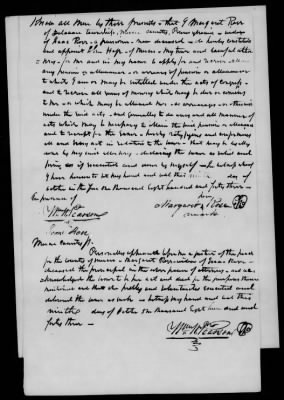 Know all Men by these presents - that I Margaret Rose
of Delaware township, Mercer county, Pennsylvania - widow
of Isaac Rose - a pensioner - now deceased - do hereby constitute
and appoint John Hoge - of Mercer - my true and lawful attor
-ney - for me and in my name to apply for and receive all
any pension or allowance - or arrears of pension or allowance
to which I am or may be entitled under the acts of Congress -
and to receive all sums of money which may be due or coming
to me - or which may be allowed me - as arrearages - or otherwise
under the said acts - and generally to do any and all manner of
acts which may be necessary to obtain the said pension or allowance
and to receipt for the same - hereby ratifying and confirming
all and every act in relation to the same - that may be legally
done by my said attorney - declaring the same as valid and
as if executed and done by myself - In testimony whereof
I have hereunto set my hand and seal this ninth day of
october in the year one thousand eight hundred and forty three -
In presence of
Wm M Pearson
her
Margaret X Rose
mark
Isaac Hoge
Mercer County ss.
Personally appeared before me a justice of the peace
for the county of Mercer - Margaret Rose widow of Isaac Rose -
the principal in the above power of attorney - and ac
-knowledged the same to be her act and deed for the purposes therein
mentioned and that she freely and voluntarily executed and
delivered the same as such - witness my hand and seal this
ninth day of october one thousand eight hundred and
forty three -
Wm M Pearson